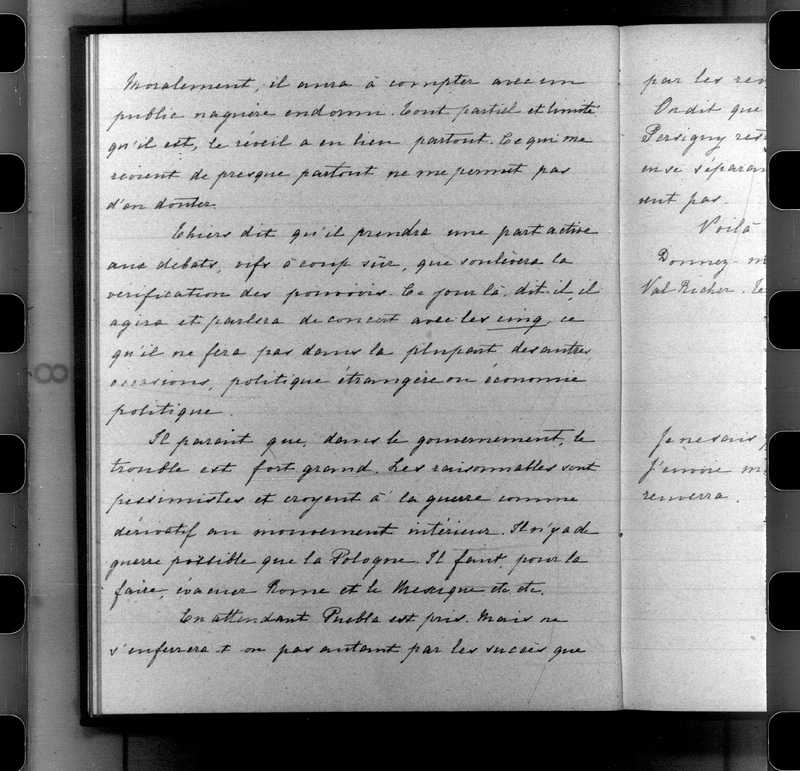 Moralement, il aura à compter avec un
public naguère endormi. Tout partiel et limité
qu'il est, le réveil a eu lieu partout. Ce qui me
revient de presque partout ne me permet pas
d'en douter.
Thiers dit qu'il prendra une part active
aux debats, vifs à coup sûr, que soulèvera la
vérification des pouvoirs. Ce jour là, dit-il, il
agira et parlera de concert avec les cinq, ce
qu'il ne fera pas dans la plupart des autres
occasions, politique étrangère ou économie
politique.
Il parait que, dans le gouvernement, le
trouble est fort grand. Les raisonnables sont
pessimistes et croyent à la guerre comme
dérivatif au mouvement intérieur. Il n'y a de
guerre possible que la Pologne. Il faut, pour la
faire, évacuer Rome et le Mexique etc etc.
En attendant Puebla est pris. Mais ne
s'enferrera-t-on pas autant par les succès que
par les
On dit que
Persigny
en se
ent pas.
Voilà
Donnez
Val Richer.
Je ne sais
J'envoie
renverra.